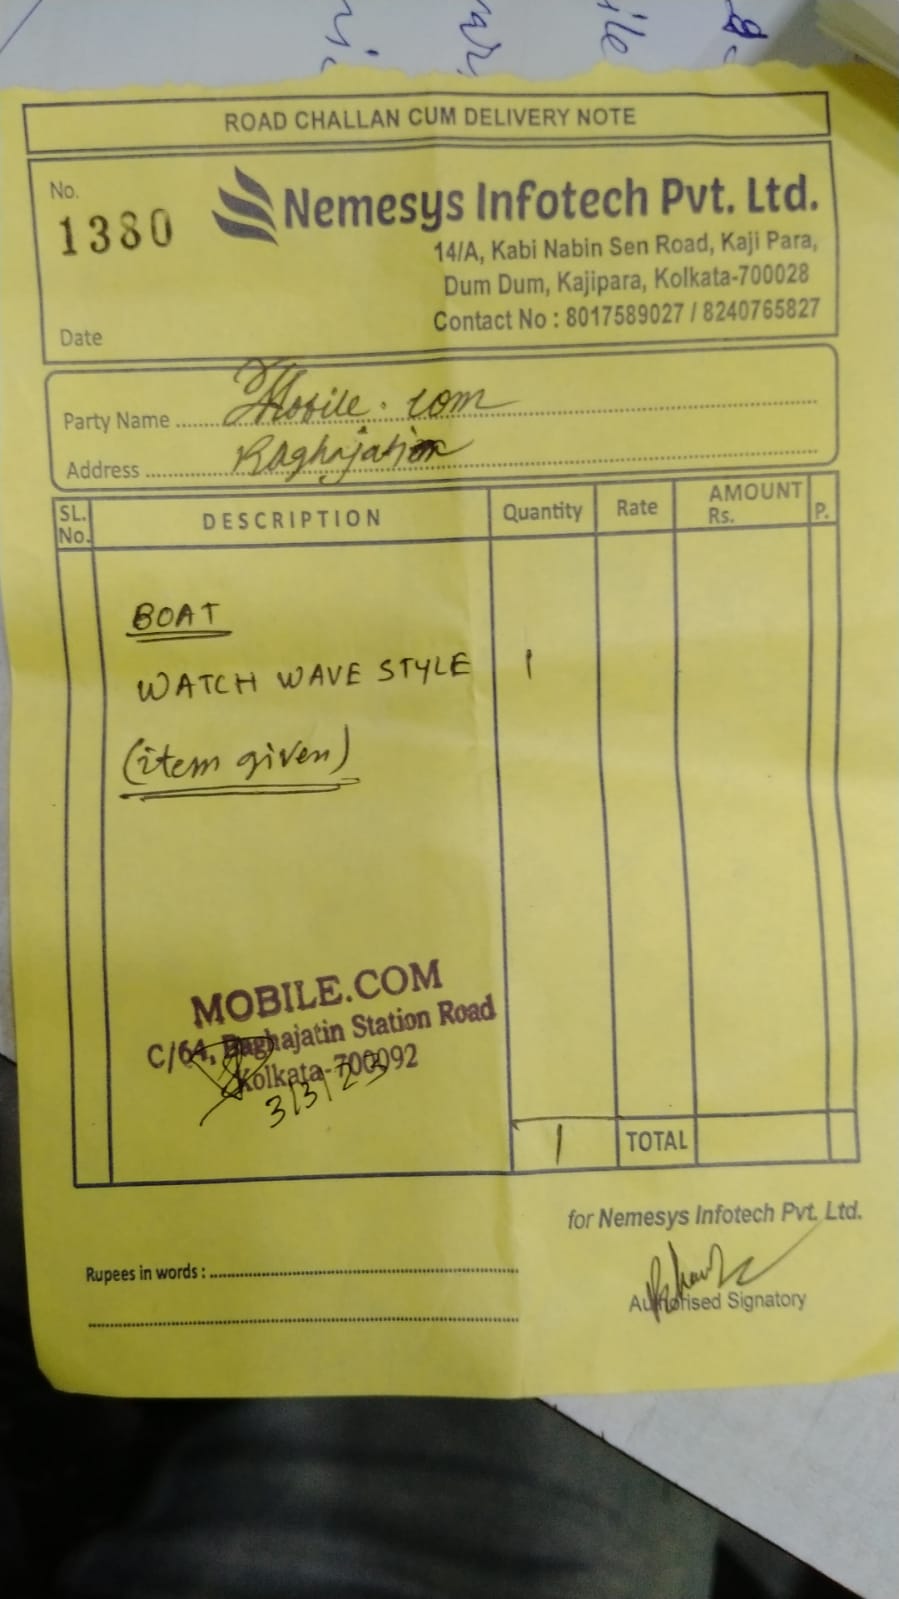 ROAD CHALLAN CUM DELIVERY NOTE
No.
1380
Nemesys Infotech Pvt. Ltd.
14/A, Kabi Nabin Sen Road, Kaji Para,
Dum Dum, Kajipara, Kolkata-700028
Contact No : 8017589027 / 8240765827
Date
Party Name Mobile.com
Address Baghajatin
SL. No. DESCRIPTION Quantity Rate AMOUNT Rs. P.
BOAT
WATCH WAVE STYLE 1
(item given)
MOBILE.COM
C/64, Baghajatin Station Road
Kolkata-700092
3/3/23
1 TOTAL
for Nemesys Infotech Pvt. Ltd.
Rupees in words :
Authorised Signatory